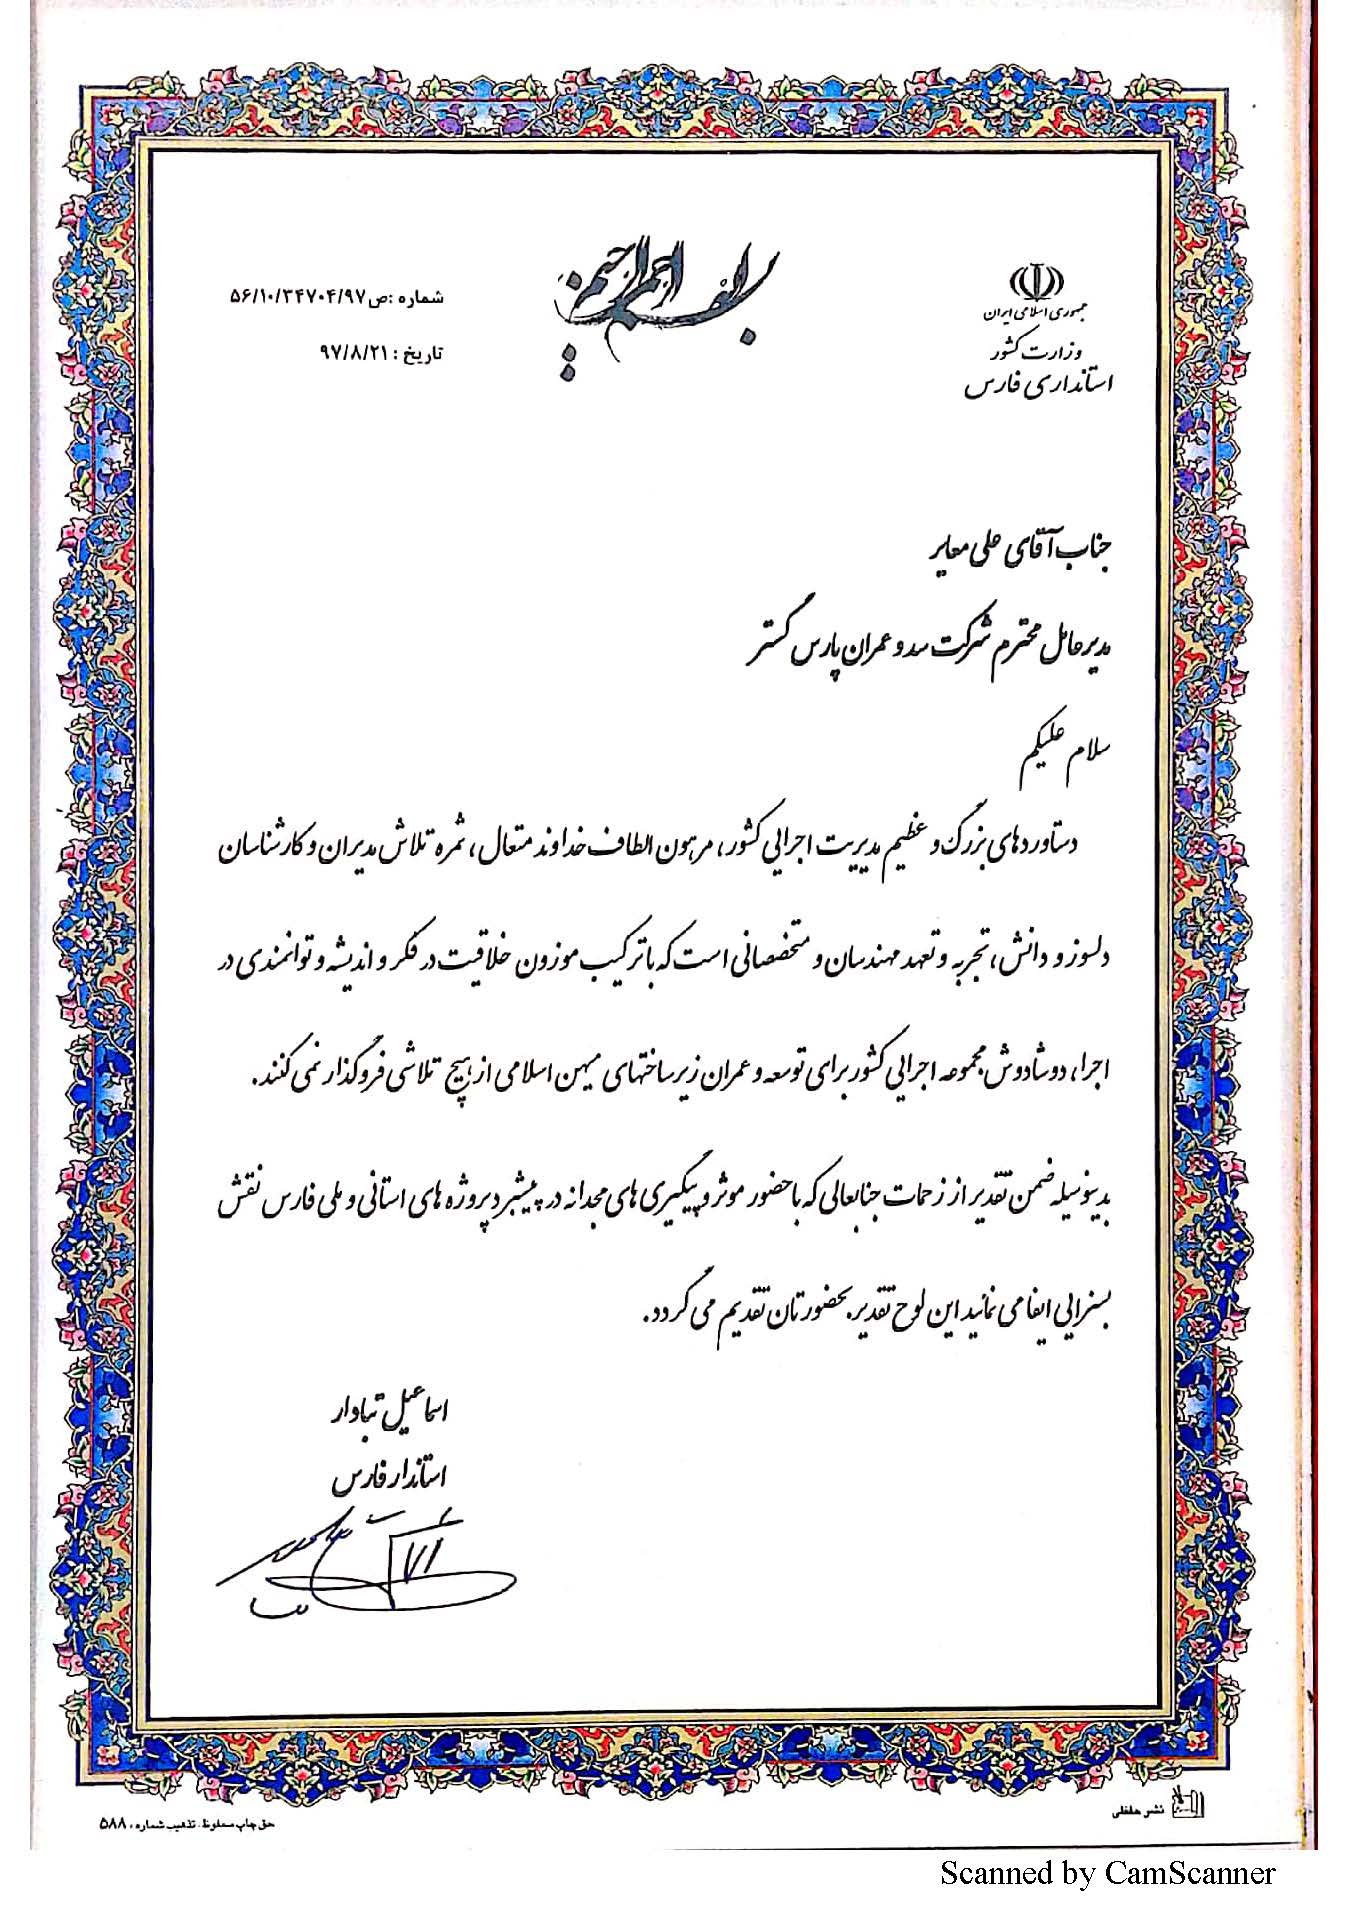 بسم الله الرحمن الرحیم
جمهوری اسلامی ایران
وزارت کشور
استانداری فارس
شماره :ص۵۶/۱۰/۳۴۷۰۴/۹۷
تاریخ : ۹۷/۸/۲۱
جناب آقای علی معایر
مدیرعامل محترم شرکت سد و عمران پارس گستر
سلام علیکم
دستاوردهای بزرگ و عظیم مدیریت اجرایی کشور، مرهون الطاف خداوند متعال، ثمره تلاش مدیران و کارشناسان
دلسوز و دانش، تجربه و تعهد مهندسان و متخصصانی است که با ترکیب موزون خلاقیت در فکر و اندیشه و توانمندی در
اجرا، دوشادوش مجموعه اجرایی کشور برای توسعه و عمران زیرساختهای میهن اسلامی از هیچ تلاشی فروگذار نمی کنند.
بدینوسیله ضمن تقدیر از زحمات جنابعالی که با حضور موثر و پیگیری های مجدانه در پیشبرد پروژه های استانی و ملی فارس نقش
بسزایی ایفا می نمائید این لوح تقدیر بحضورتان تقدیم می گردد.
اسماعیل تبادار
استاندار فارس
حق چاپ محفوظ. تذهیب شماره، ۵۸۸
نشر حافظی
Scanned by CamScanner